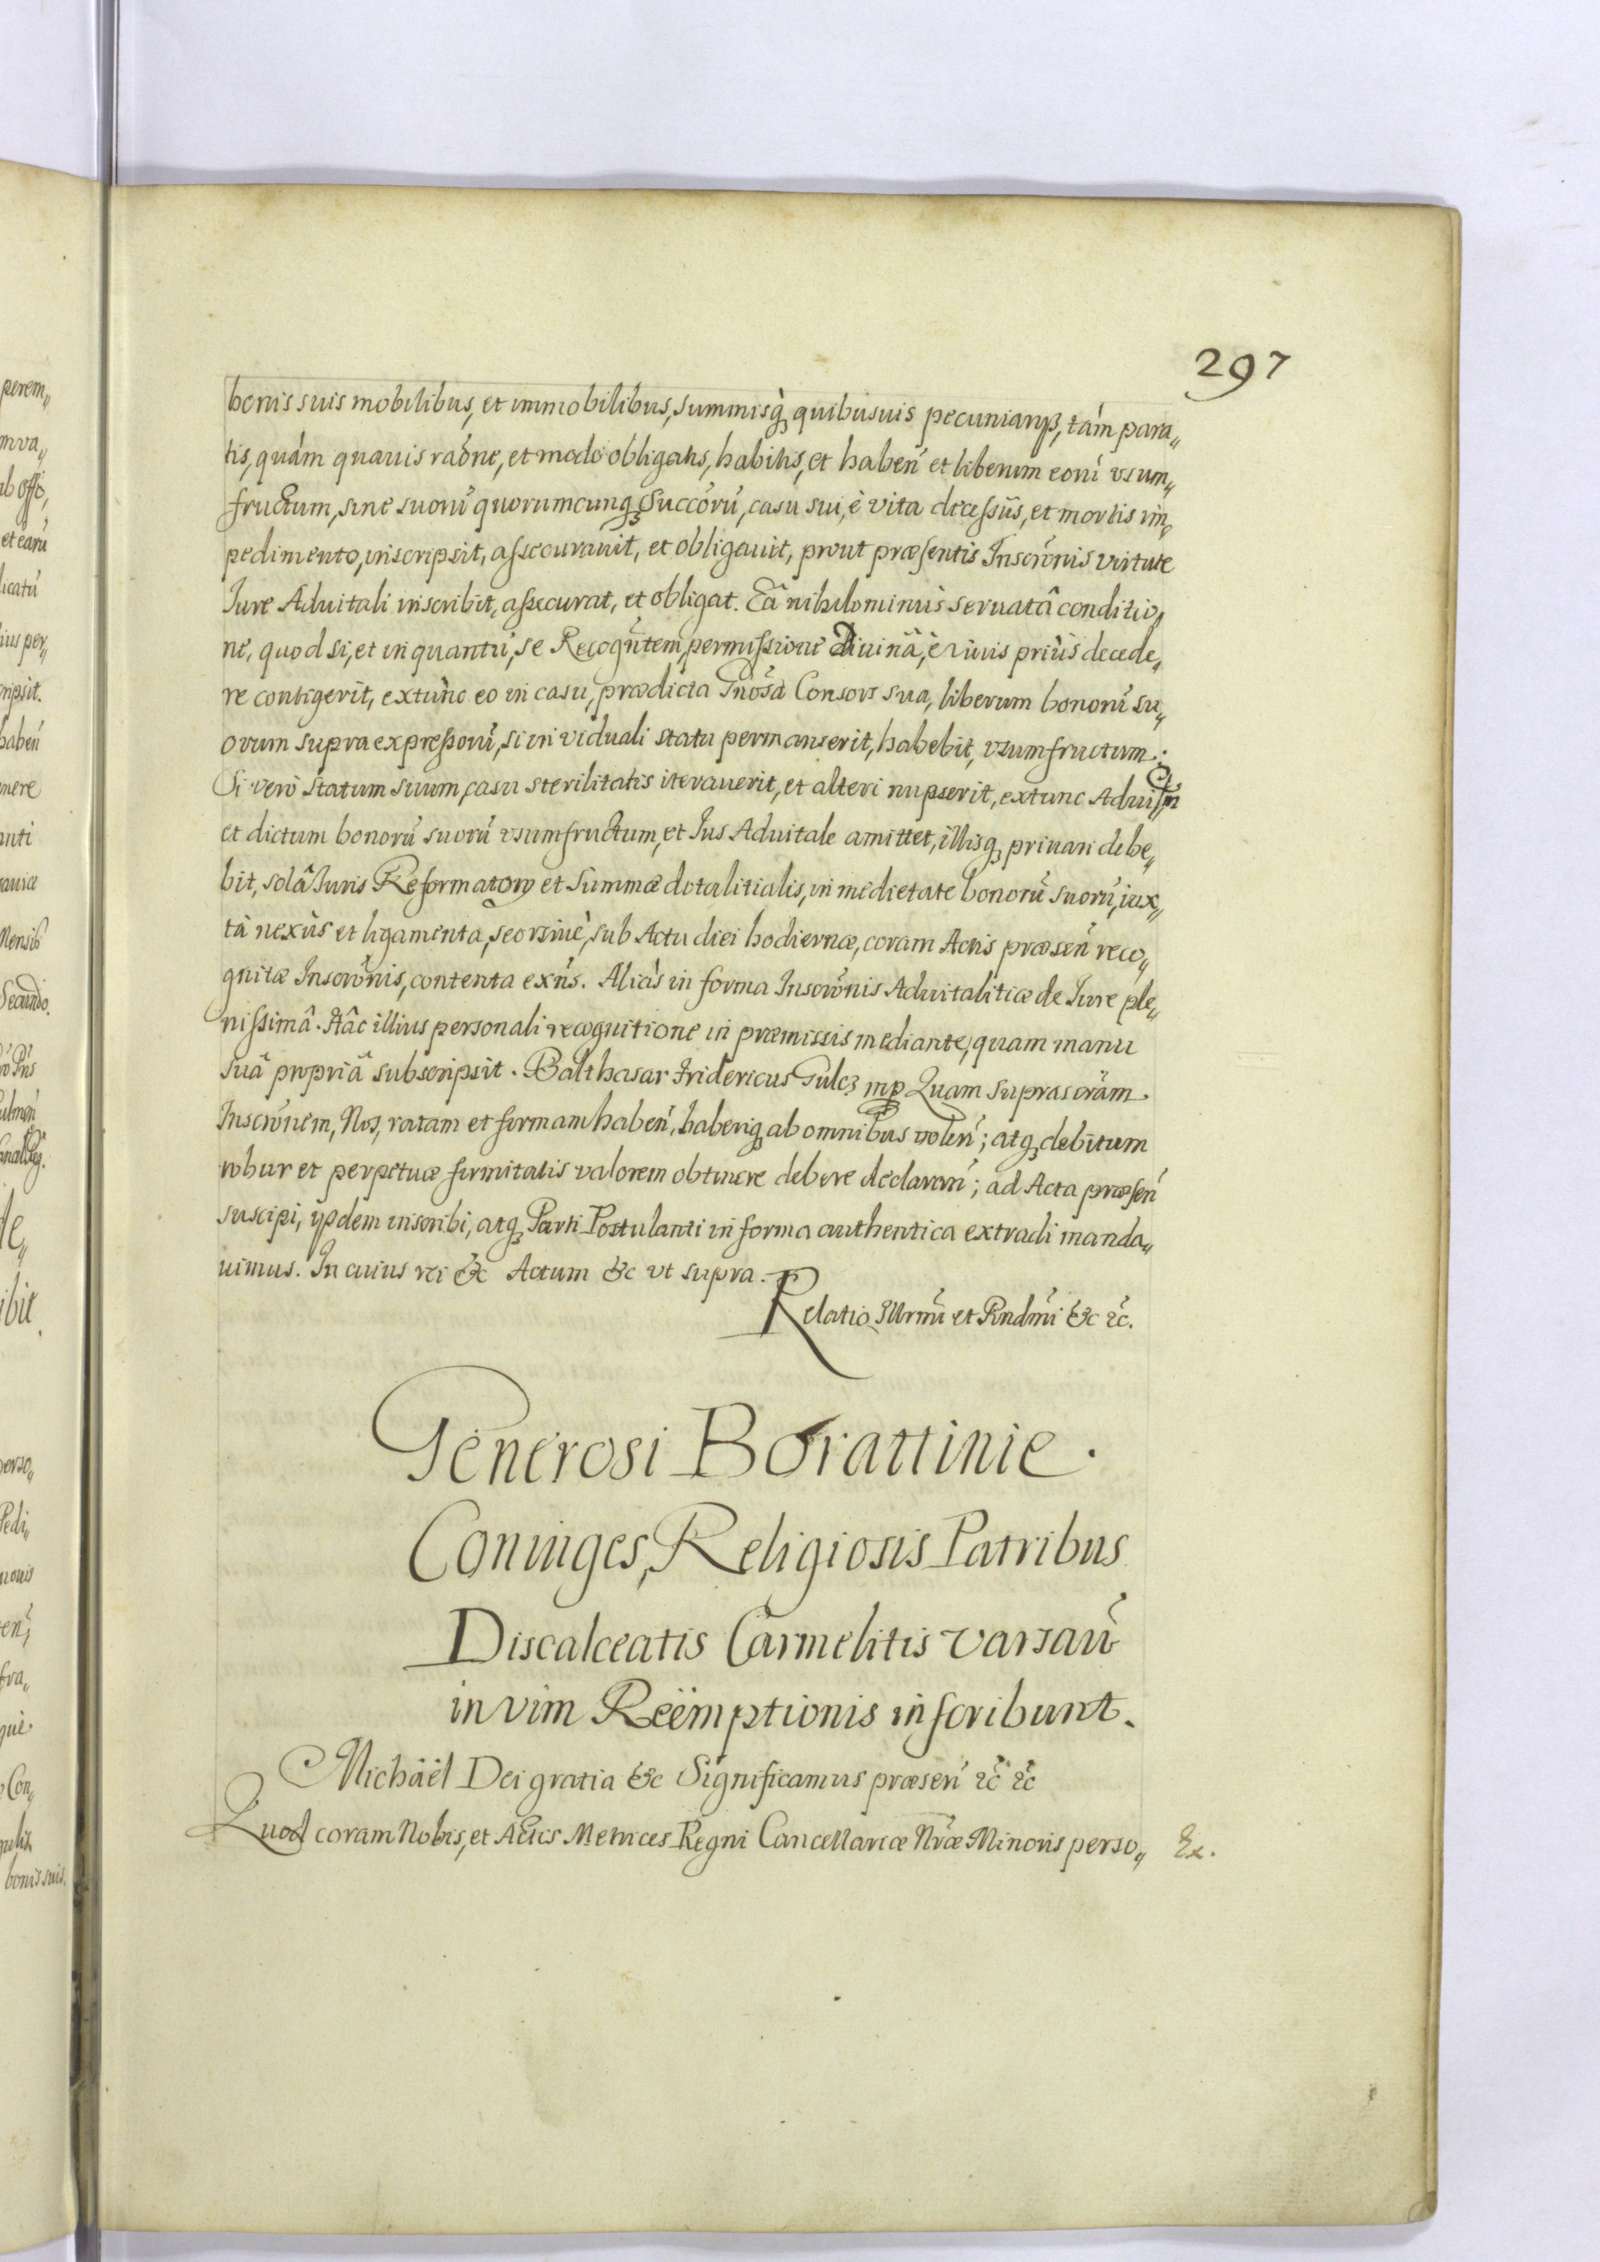 297
bonis suis mobilibus, et immobilibus, summisq́ quibusuis pecuniarijs, tám para„
tis, quám quauis raóne, et modo obligatis, habitis, et habeñ et liberum eorũ vsum„
fructum, sine suorũ quorumcunq́ Succorũ, casu sui, è vita decessũs, et mortis im„
pedimento, inscripsit, assecurauit, et obligauit, prout præsentis Inscrõnis virtute
Iure Aduitali inscribit, assecurat, et obligat. Eâ nihilominùs seruatâ conditio„
ne, quod si, et inquantũ, se Recogñtem, permissione diuinâ, è viuis priùs decede„
re contigerit, extùnc eo in casu, prædicta Gnõsa Consors sua, liberum bonorũ su„
orum supra expressorũ, si in viduali statu permanserit, habebit, vsumfructum:
Si verò statum suum, casu sterilitatis iterauerit, et alteri nupserit, extunc
et dictum bonorũ suorũ vsumfructum, et Ius Aduitale amittet, illisq́ priuari debe„
bit, solâ Iuris Reformatorÿ et Summæ dotalitialis, in medietate bonorũ suorũ, iux„
tà nexùs et ligamenta, seorsiuè, sub Actu diei hodiernæ, coram Actis præseñ reco„
gnitæ Inscrõnis, contenta exñs. Aliàs in forma Inscrõnis Aduitalitiæ de Iure ple„
nissimâ. Hâc illius personali recognitione in præmissis mediante, quam manu
suâ propriâ subscripsit. Balthasar Fridericus Gulcz mp Quam suprascrãm.
Inscrõnem, Nos, ratam et firmam habeñ, haberiq́ ab omnibus voleñ; atq́ debitum
robur et perpetuæ firmitatis valorem obtinere debere declarañ; ad Acta præseñ
suscipi, ijsdem inscribi, atq́ Parti Postulanti in forma authentica extradi manda„
uimus. In cuius rei &c Actum &c vt supra.
Relatio Illrmi et Rndmi &c &c.
Generosi Borattinie.
Coniuges, Religiosis Patribus
Discalceatis Carmelitis Varsaũ
in vim Reëmptionis inscribunt.
Michaël Dei gratia &c Significamus præseñ &c &c
Quod coram Nobis, et Actis Metrices Regni Cancellariæ Nr̃æ Minoris perso„ Ex.